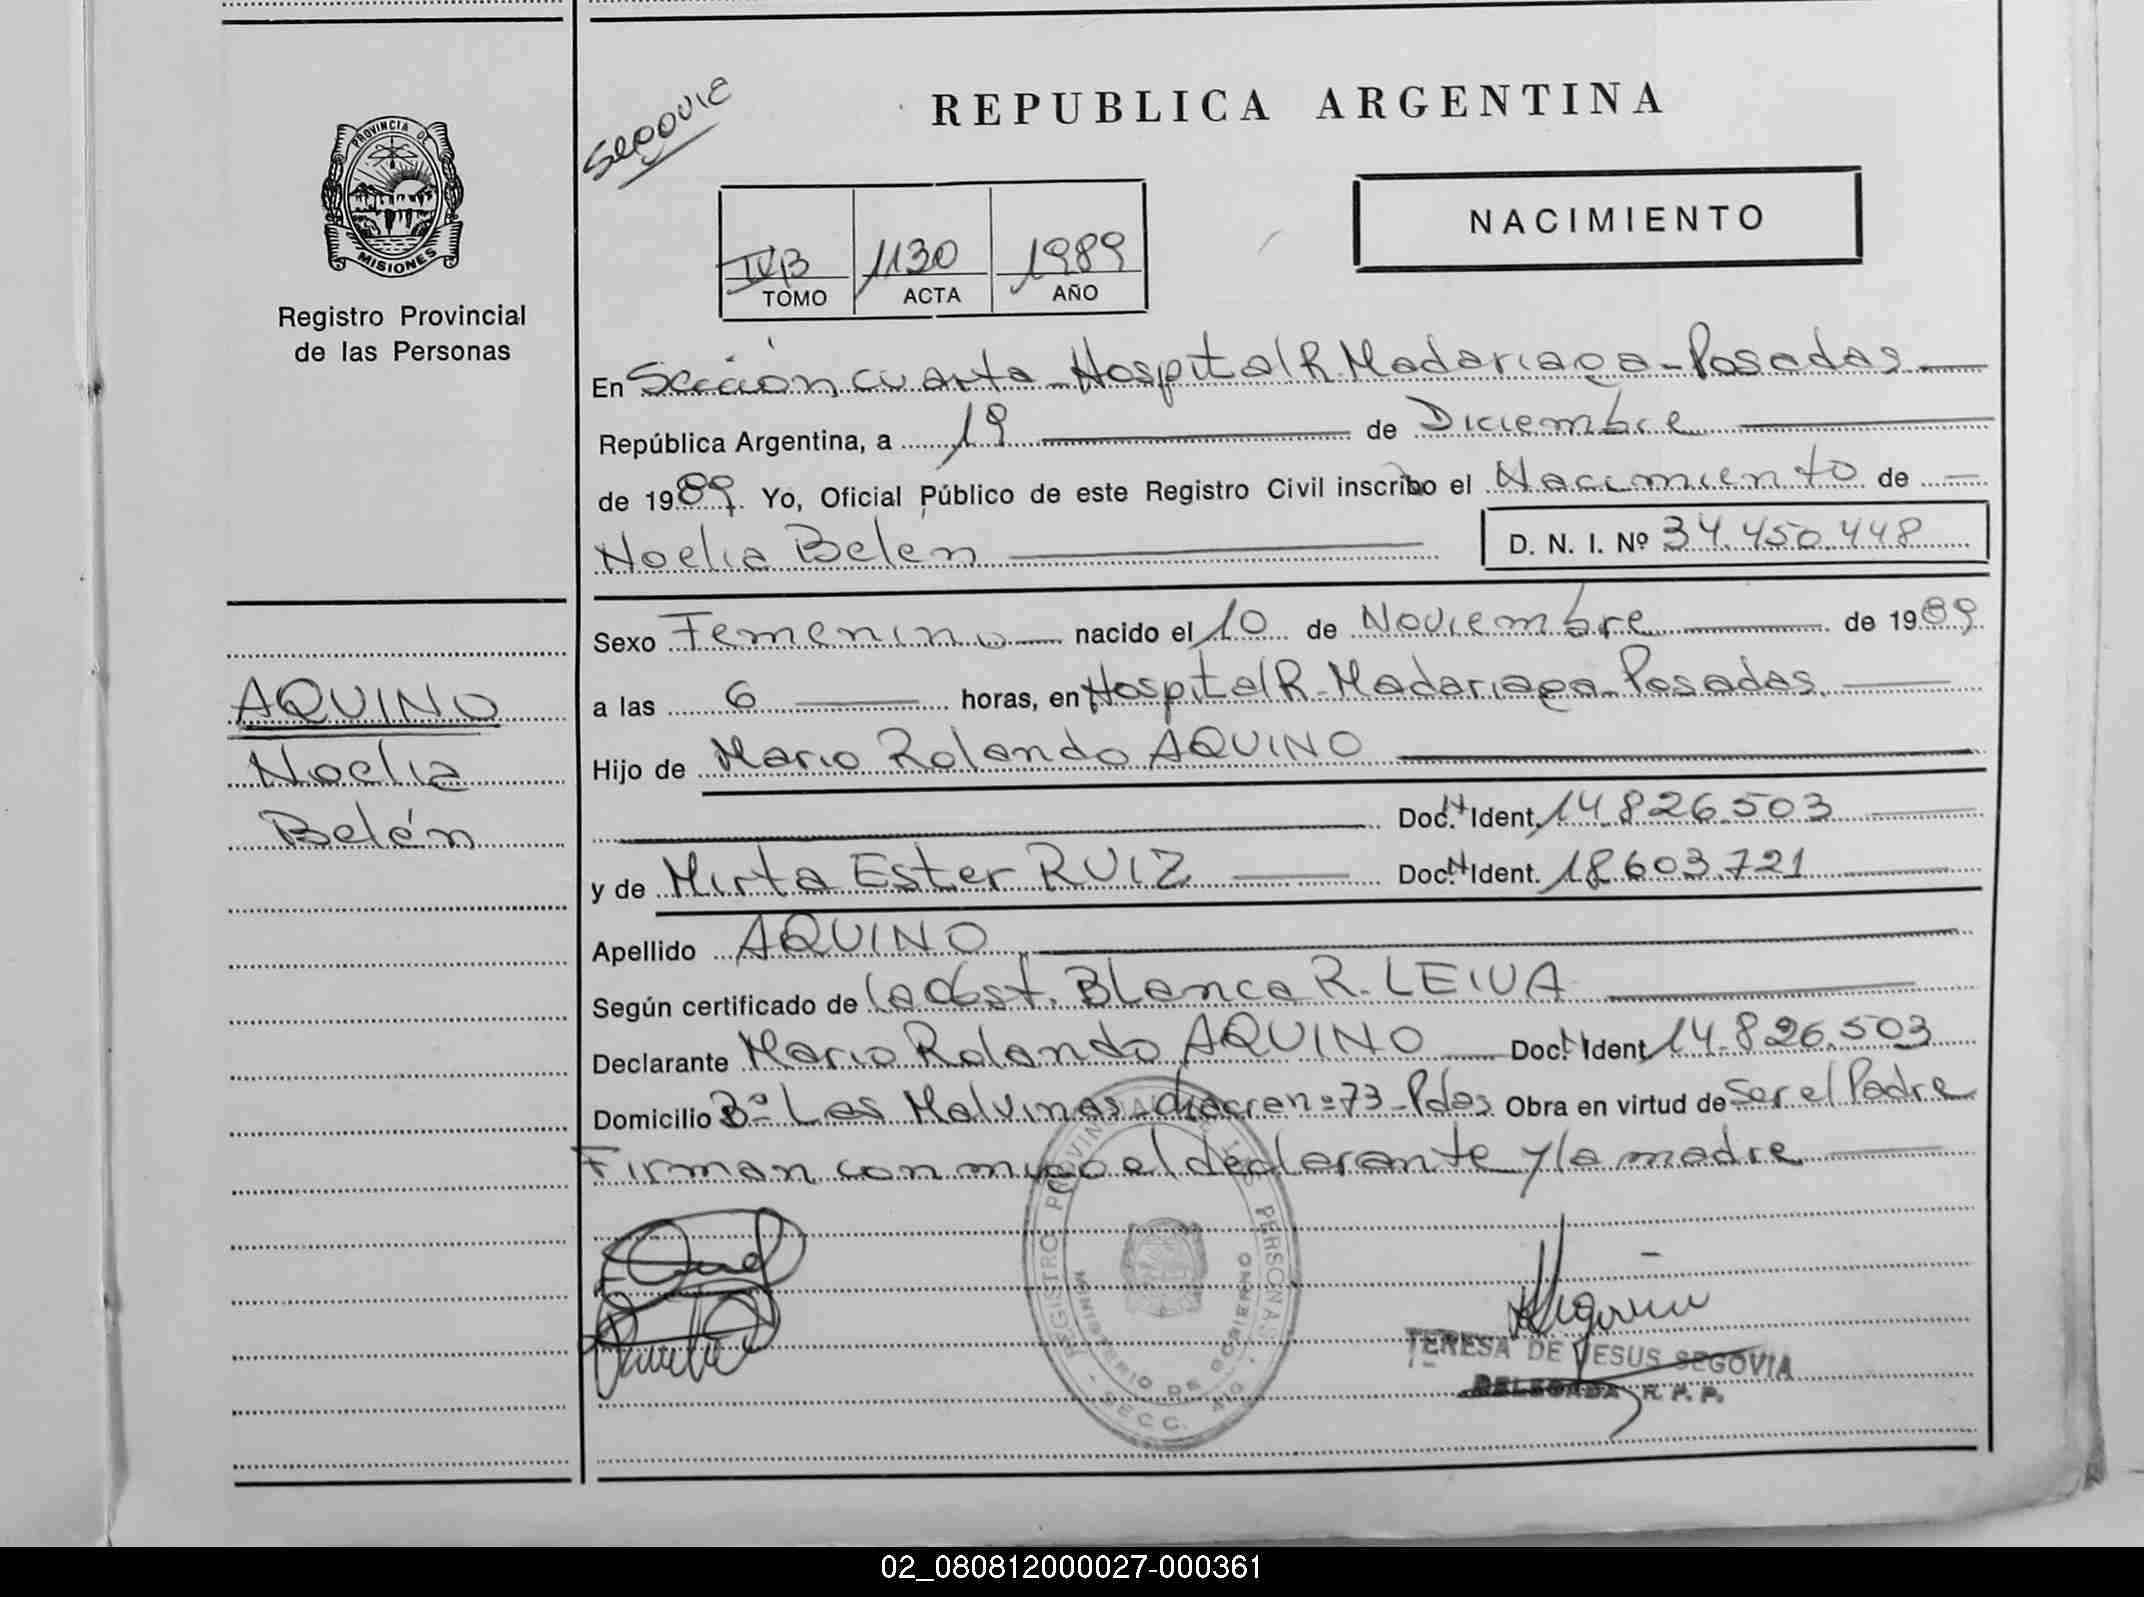 PROVINCIA DE
MISIONES
Registro Provincial
de las Personas
AQUINO
Noelia
Belén
Segovia
REPUBLICA ARGENTINA
IV B 1130 1989
TOMO ACTA AÑO
NACIMIENTO
En Sección cuarta Hospital R. Madariaga - Posadas
República Argentina, a 19 de Diciembre
de 1989. Yo, Oficial Público de este Registro Civil inscribo el Nacimiento de
Noelia Belen D. N. I. Nº 34.450.448
Sexo Femenino nacido el 10 de Noviembre de 1989
a las 6 horas, en Hospital R. Madariaga - Posadas
Hijo de Mario Rolando AQUINO
Doc. Ident. 14.826.503
y de Mirta Ester RUIZ Doc. Ident. 18.603.721
Apellido AQUINO
Según certificado de la Obst. Blanca R. LEIVA
Declarante Mario Rolando AQUINO Doc. Ident 14.826.503
Domicilio Bº Las Malvinas - chacra nº 73 - Pdas Obra en virtud de ser el Padre
Firman con migo el declarante y la madre
REGISTRO PROVINCIAL DE LAS PERSONAS
MINISTERIO DE GOBIERNO
SECC. 4ta
TERESA DE JESUS SEGOVIA
DELEGADA R. P. P.
02_080812000027-000361